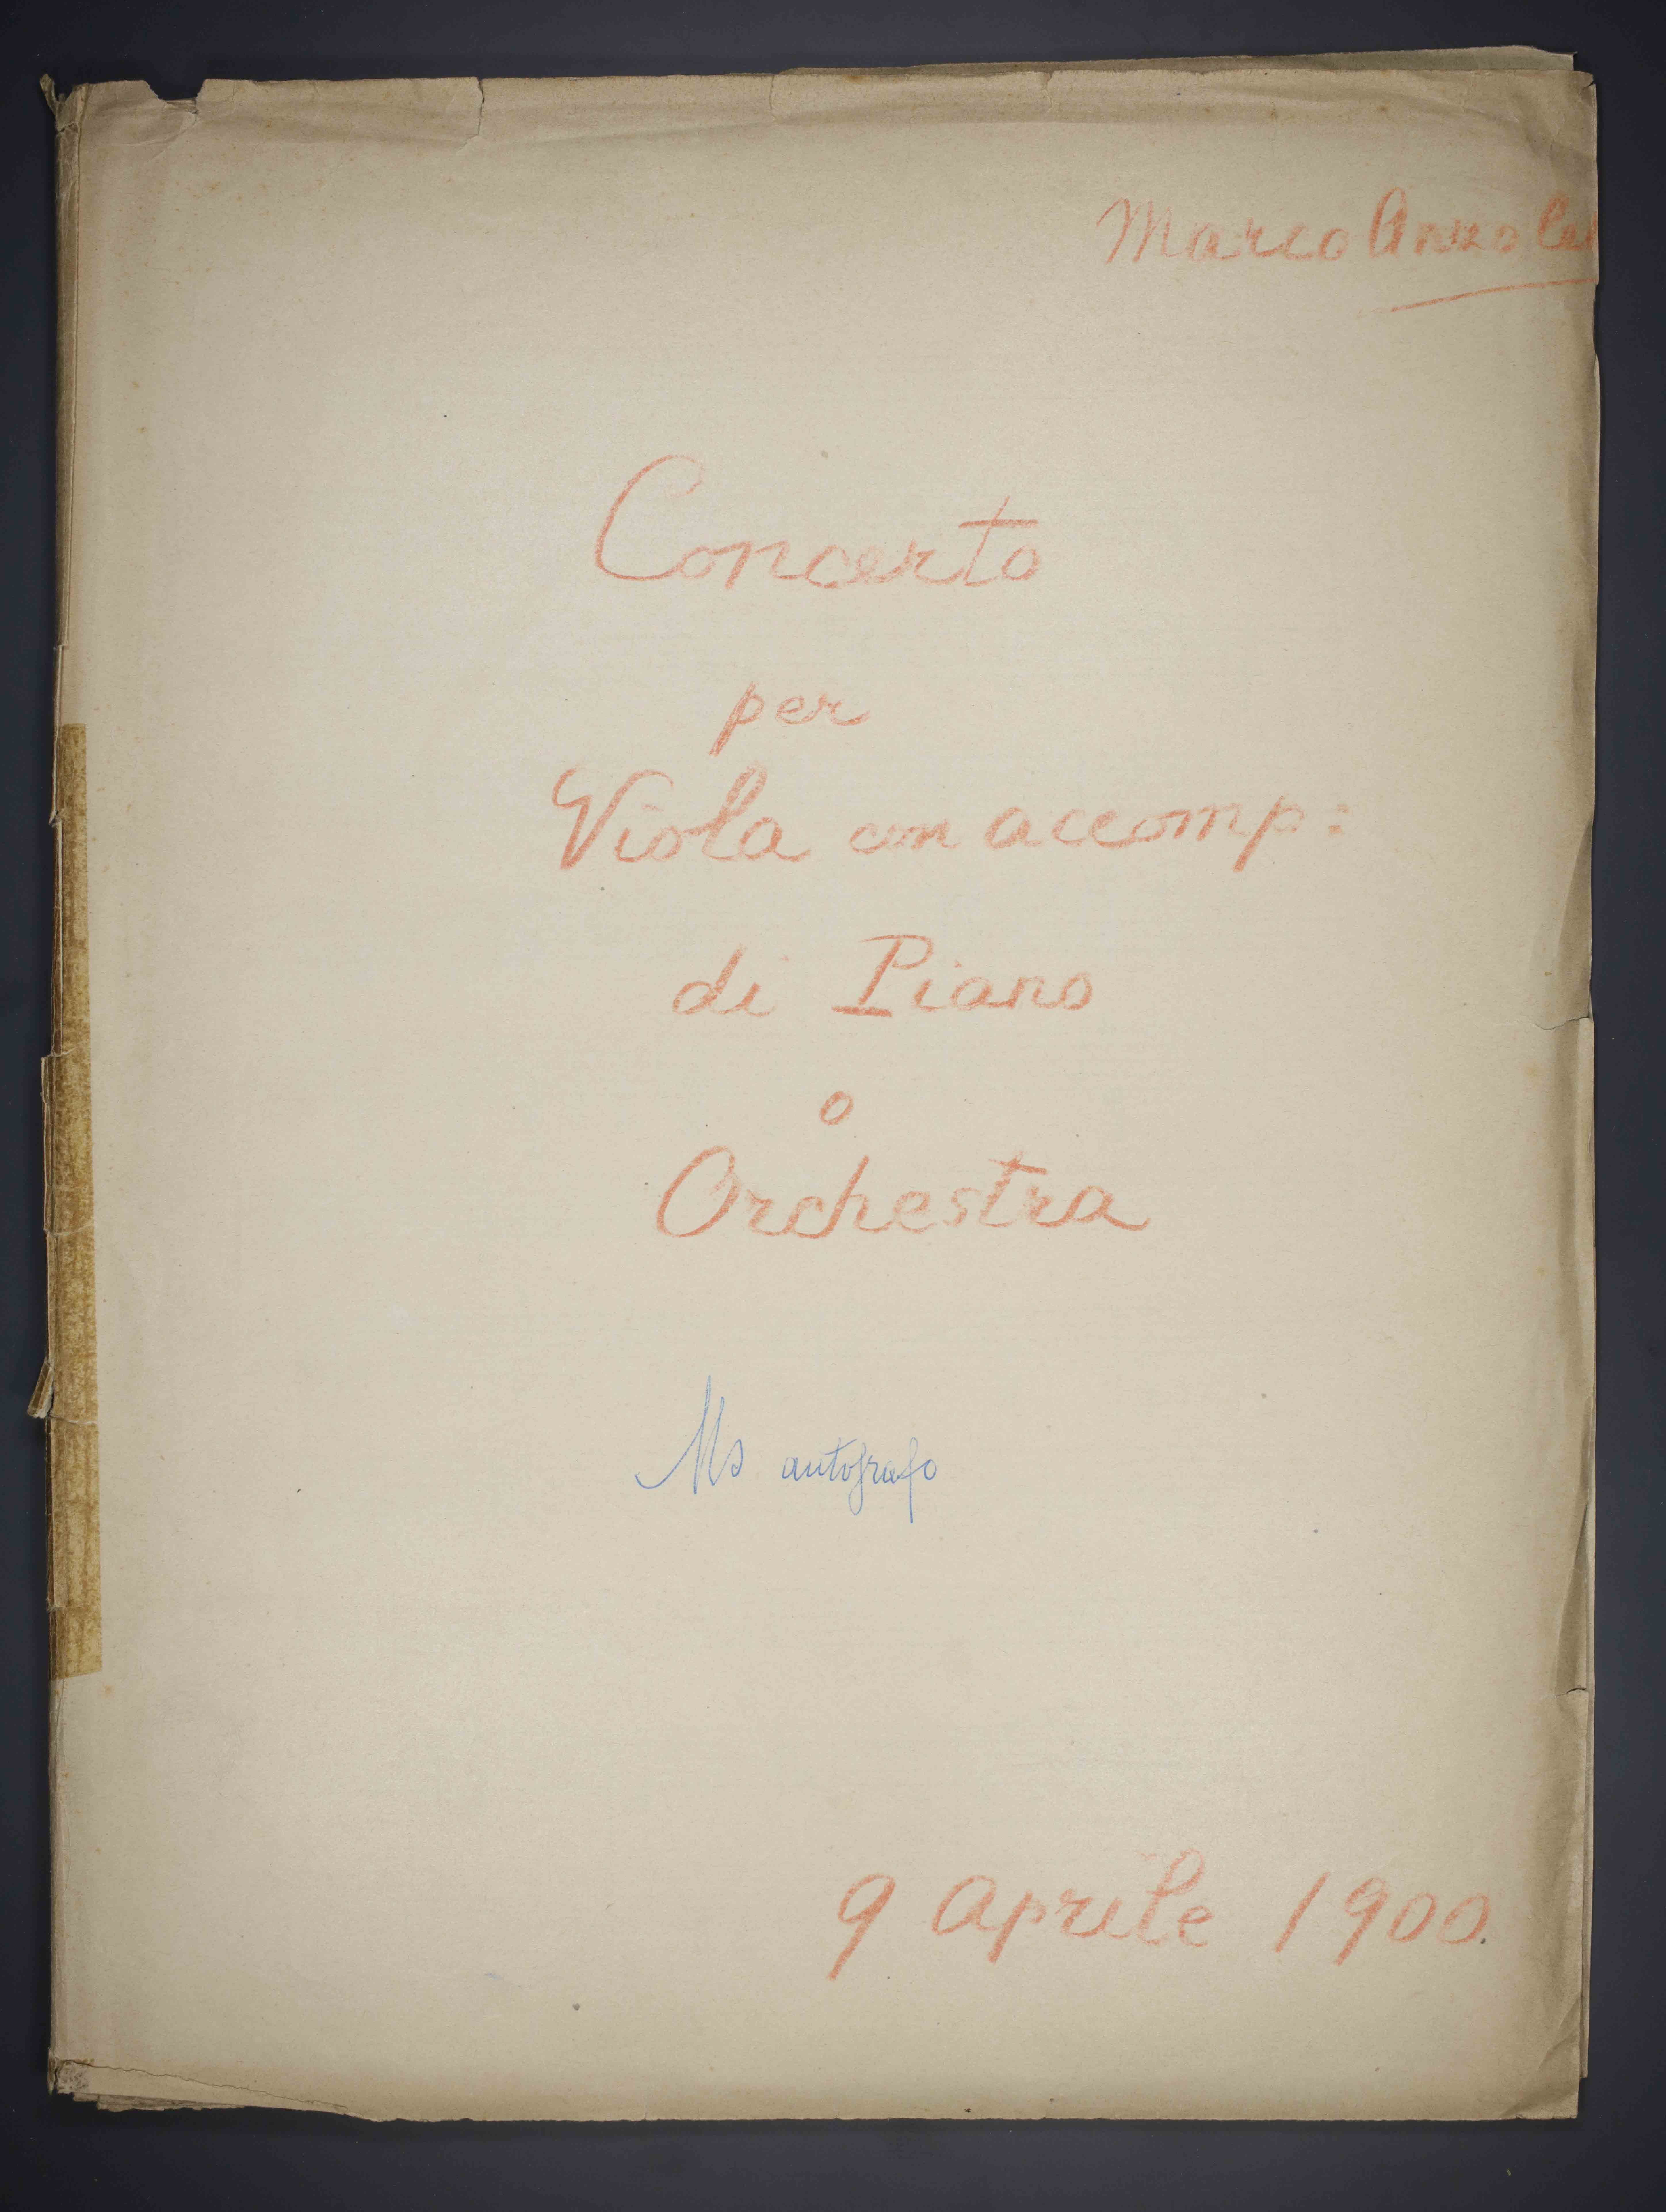 Marco Anzolet
Concerto
per
Viola con accomp:
di Piano
o
Orchestra
Ms autografo
9 Aprile 1900.